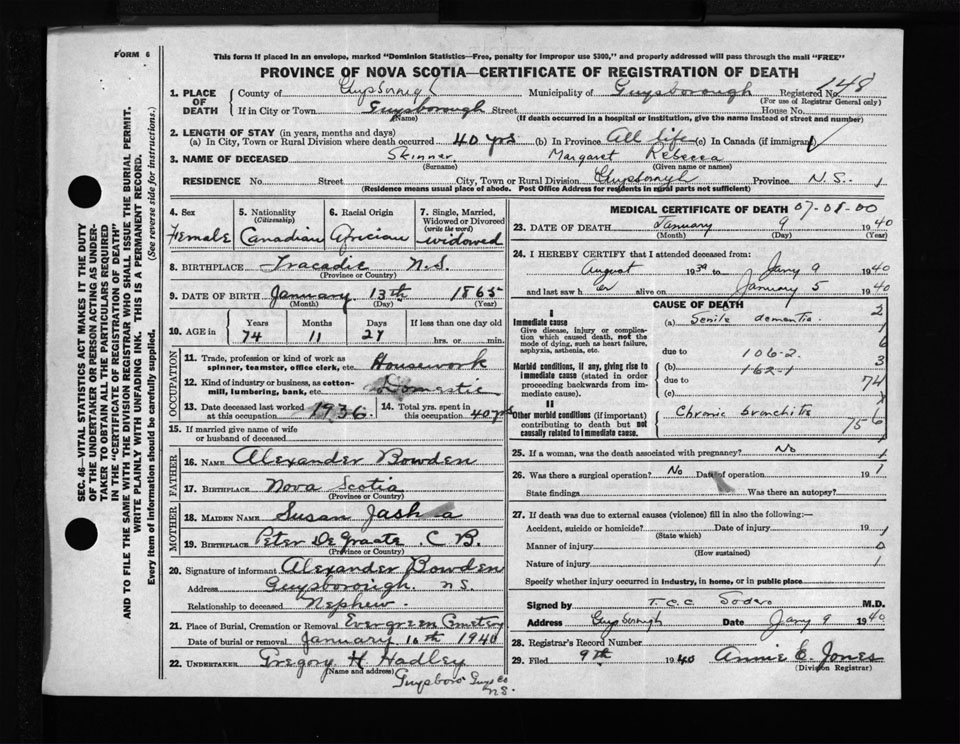 FORM 6
This form if placed in an envelope, marked "Dominion Statistics—Free, penalty for improper use $300," and properly addressed will pass through the mail "FREE"
PROVINCE OF NOVA SCOTIA—CERTIFICATE OF REGISTRATION OF DEATH
SEC. 46—VITAL STATISTICS ACT MAKES IT THE DUTY
OF THE UNDERTAKER OR PERSON ACTING AS UNDER-
TAKER TO OBTAIN ALL THE PARTICULARS REQUIRED
IN THE "CERTIFICATE OF REGISTRATION OF DEATH"
AND TO FILE THE SAME WITH THE DIVISION REGISTRAR WHO SHALL ISSUE THE BURIAL PERMIT.
WRITE PLAINLY WITH UNFADING INK. THIS IS A PERMANENT RECORD.
Every item of information should be carefully supplied. (See reverse side for instructions.)
1. PLACE OF DEATH County of Guysborough Municipality of Guysborough Registered No. 148
(For use of Registrar General only)
If in City or Town Guysborough Street House No.
(Name) (If death occurred in a hospital or institution, give the name instead of street and number)
2. LENGTH OF STAY (in years, months and days)
(a) In City, Town or Rural Division where death occurred 40 yrs (b) In Province All life (c) In Canada (if immigrant)
3. NAME OF DECEASED Skinner, Margaret Rebecca
(Surname) (Given name or names)
RESIDENCE No. Street City, Town or Rural Division Guysborough Province N.S. 1
(Residence means usual place of abode. Post Office Address for residents in rural parts not sufficient)
4. Sex Female
5. Nationality (Citizenship) Canadian
6. Racial Origin African
7. Single, Married, Widowed or Divorced (write the word) widowed
8. BIRTHPLACE Tracadie N.S.
(Province or Country)
9. DATE OF BIRTH January 13th 1865
(Month) (Day) (Year)
10. AGE in Years 74 Months 11 Days 27 If less than one day old
hrs. or min.
OCCUPATION
11. Trade, profession or kind of work as spinner, teamster, office clerk, etc. Housework
12. Kind of industry or business, as cotton-mill, lumbering, bank, etc. Domestic
13. Date deceased last worked at this occupation 1936
14. Total yrs. spent in this occupation 40 yrs
15. If married give name of wife or husband of deceased
FATHER
16. NAME Alexander Bowden
17. BIRTHPLACE Nova Scotia
(Province or Country)
MOTHER
18. MAIDEN NAME Susan
19. BIRTHPLACE Peter De Graate C.B.
(Province or Country)
20. Signature of informant Alexander Bowden
Address Guysborough N.S.
Relationship to deceased Nephew.
21. Place of Burial, Cremation or Removal Evergreen Cmetery
Date of burial or removal January 10th 1940
22. UNDERTAKER Gregory H Hadley
(Name and address)
Guysboro Guys Co
N.S.
MEDICAL CERTIFICATE OF DEATH 07-08-00
23. DATE OF DEATH January 9 1940
(Month) (Day) (Year)
24. I HEREBY CERTIFY that I attended deceased from:
August 1939 to Jany 9 1940
and last saw her alive on January 5 1940
CAUSE OF DEATH
I
Immediate cause
Give disease, injury or complication which caused death, not the mode of dying, such as heart failure, asphyxia, asthenia, etc.
(a) Senile dementia.
due to 106-2.
Morbid conditions, if any, giving rise to immediate cause (stated in order proceeding backwards from immediate cause).
(b) 162-1
due to
(c)
II
Other morbid conditions (if important) contributing to death but not causally related to immediate cause.
Chronic bronchitis
25. If a woman, was the death associated with pregnancy? No
26. Was there a surgical operation? No Date of operation 19
State findings Was there an autopsy?
27. If death was due to external causes (violence) fill in also the following:—
Accident, suicide or homicide? Date of injury 19
(State which)
Manner of injury
(How sustained)
Nature of injury
Specify whether injury occurred in industry, in home, or in public place
Signed by T.C.C. Sodero M.D.
Address Guysborough Date Jany 9 1940
28. Registrar's Record Number
29. Filed 9th 1940 Annie E. Jones
(Division Registrar)